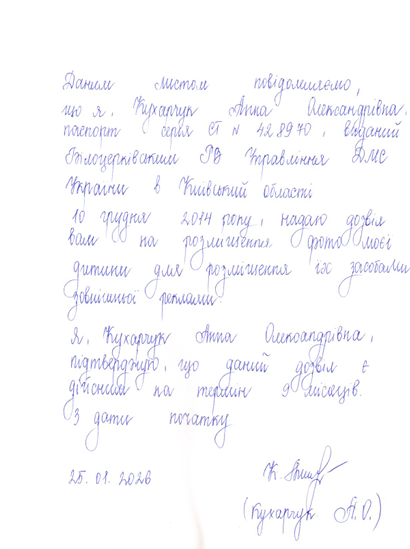 Даним листом повідомляємо,
що я, Кухарчук Анна Олександрівна,
паспорт серія СТ N 428970, виданий
Білоцерківським РВ Управління ДМС
України в Київській області
10 грудня 2014 року, надаю дозвіл
вам на розміщення фото моєї
дитини для розміщення їх засобами
зовнішньої реклами.
Я, Кухарчук Анна Олександрівна,
підтверджую, що даний дозвіл є
дійсним на термін 9 місяців.
З дати початку
25.01.2026 К.
(Кухарчук А.О.)